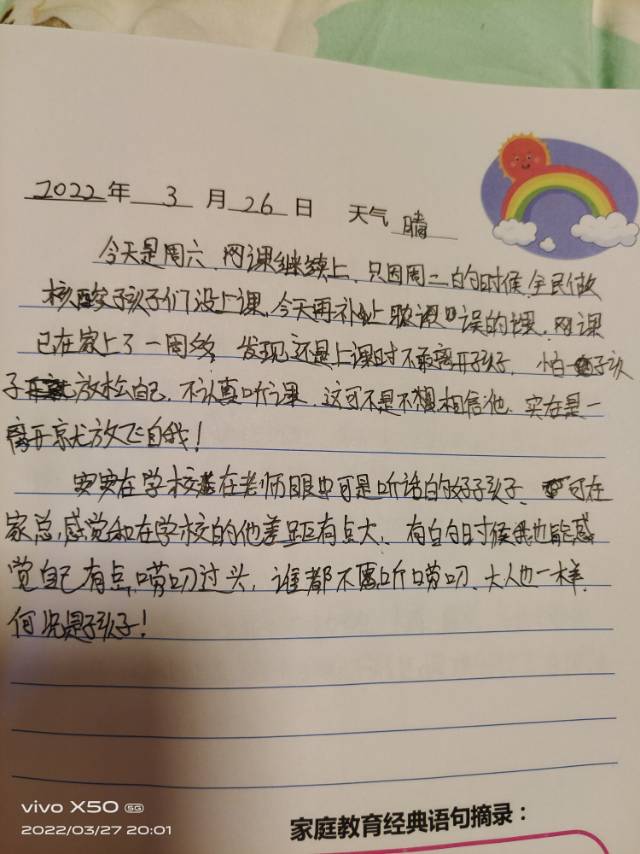 2022年 3 月 26 日 天气 晴
今天是周六，网课继续上，只因周二的时候全民做
核酸孩子们没上课，今天再补上耽误的课，网课
已在家上了一周多，发现还是上课时不乘离开孩子，怕一孩
子就放松自己，不认真听课，这可不是不想相信他，实在是一
离开就放飞自我！
安安在学校在老师眼中可是听话的好孩子，可在
家总感觉和在学校的他差距有点大，有的时候我也能感
觉自己有点唠叨过头，谁都不愿听唠叨、大人也一样，
何况是孩子！
家庭教育经典语句摘录：
vivo X50 5G
2022/03/27 20:01